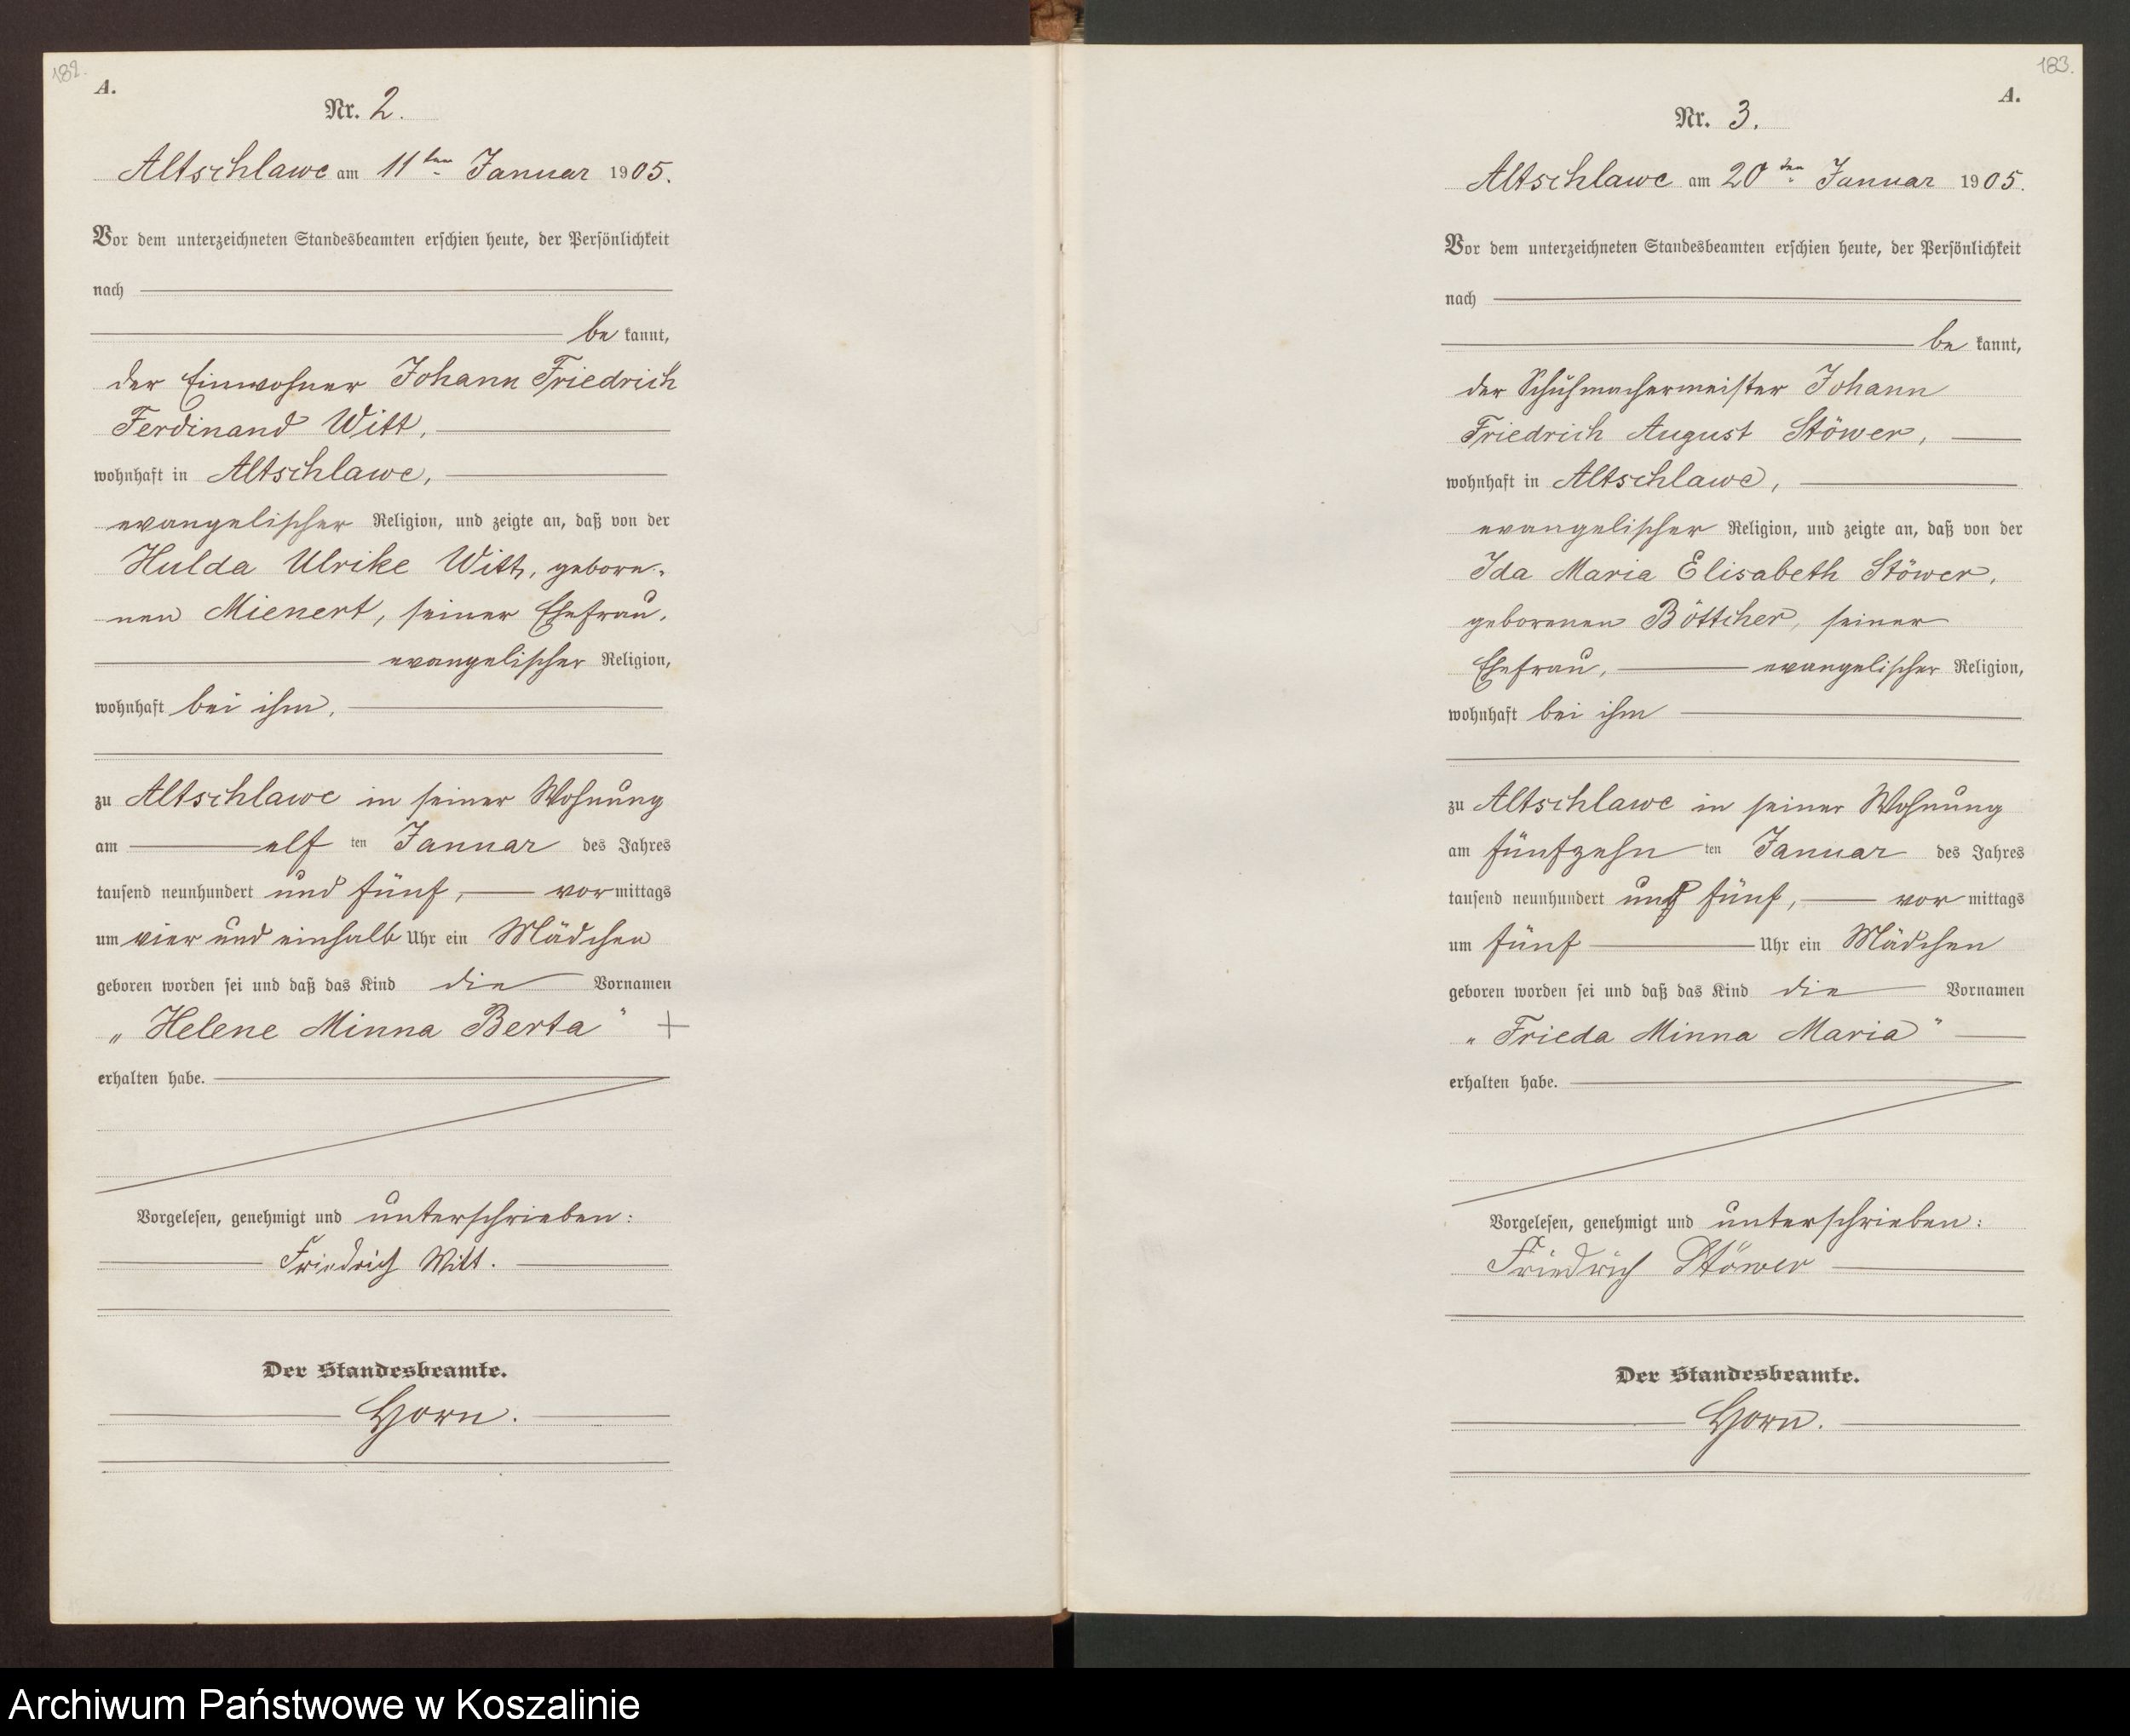 182.
A.
Nr. 2.
Altschlawe am 11ten Januar 1905.
Vor dem unterzeichneten Standesbeamten erschien heute, der Persönlichkeit
nach
be kannt,
der Einwohner Johann Friedrich
Ferdinand Witt,
wohnhaft in Altschlawe,
evangelischer Religion, und zeigte an, daß von der
Hulda Ulrike Witt, gebore-
nen Mienert, seiner Ehefrau,
evangelischer Religion,
wohnhaft bei ihm,
zu Altschlawe in seiner Wohnung
am elf ten Januar des Jahres
tausend neunhundert und fünf, vormittags
um vier und einhalb Uhr ein Mädchen
geboren worden sei und daß das Kind die Vornamen
„Helene Minna Berta“
erhalten habe.
Vorgelesen, genehmigt und unterschrieben:
Friedrich Witt.
Der Standesbeamte.
Horn.
183.
A.
Nr. 3.
Altschlawe am 20ten Januar 1905.
Vor dem unterzeichneten Standesbeamten erschien heute, der Persönlichkeit
nach
be kannt,
der Schuhmachermeister Johann
Friedrich August Stöwer,
wohnhaft in Altschlawe,
evangelischer Religion, und zeigte an, daß von der
Ida Maria Elisabeth Stöwer,
geborenen Böttcher, seiner
Ehefrau, evangelischer Religion,
wohnhaft bei ihm
zu Altschlawe in seiner Wohnung
am fünfzehn ten Januar des Jahres
tausend neunhundert und fünf, vor mittags
um fünf Uhr ein Mädchen
geboren worden sei und daß das Kind die Vornamen
„Frieda Minna Maria“
erhalten habe.
Vorgelesen, genehmigt und unterschrieben:
Friedrich Stöwer
Der Standesbeamte.
Horn.
Archiwum Państwowe w Koszalinie